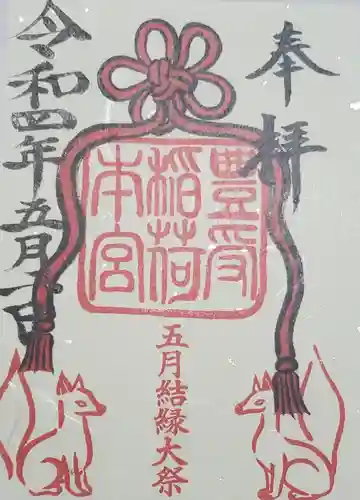 奉拝
豊受
稲荷
本宮
五月結縁大祭
令和四年五月一日